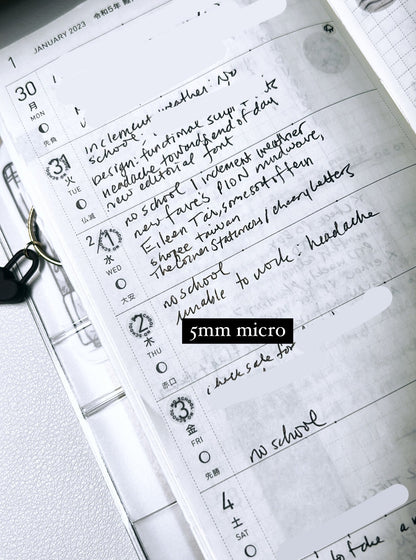 1 JANUARY 2023 令和5年
30
月
MON
先負
inclement weather: No
school
Design: functional
headache toward end of day
new editorial font
31
火
TUE
仏滅
no school / inclement weather
new fave's PION, mudwave,
Eileen Tai, some sort of fern
shopee taiwan
The Corner Stationers / cheery letters
2/1
水
WED
大安
no school
unable to work: headache
2
木
THU
赤口
5mm micro
check sale for
3
金
FRI
先勝
no school
4
土
SAT